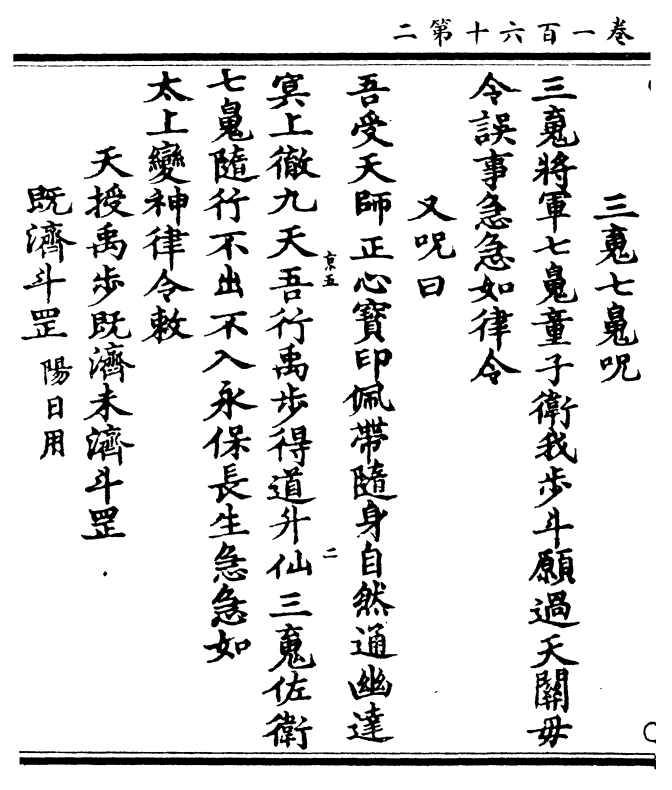 卷一百六十第二
三䰟七鬽呪
三䰟將軍七鬽童子衛我步斗願過天關毋
令誤事急急如律令
又呪曰
吾受天師正心寶印佩帶隨身自然通幽達
京五
二
冥上徹九天吾行禹步得道升仙三䰟佐衛
七鬽隨行不出不入永保長生急急如
太上變神律令敕
天授禹步既濟未濟斗罡
既濟斗罡 陽日用